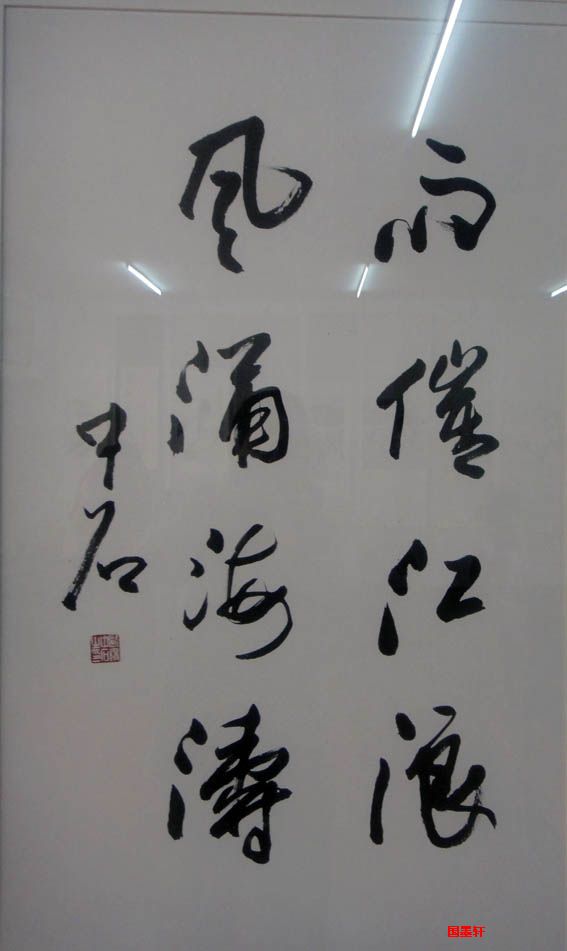 雨催江浪
風涌海濤
中石
国墨轩